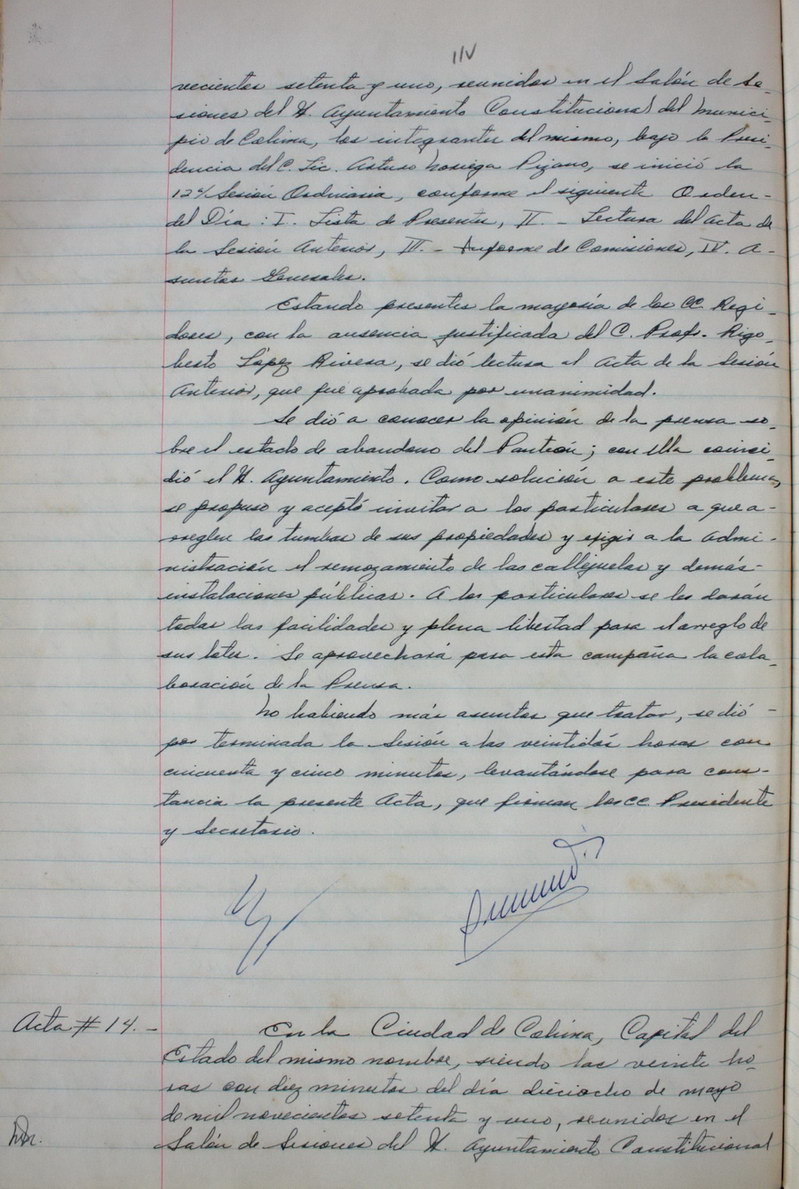 vecientos setenta y uno, reunidos en el Salón de Se-
siones del H. Ayuntamiento Constitucional del Munici-
pio de Colima, los integrantes del mismo, bajo la Presi-
dencia del C. Lic. Arturo Noriega Pizano, se inició la
12ª Sesión Ordinaria, conforme el siguiente Orden-
del Día : I. Lista de Presentes, II. - Lectura del Acta de
la Sesión Anterior, III. - Informe de Comisiones, IV. A-
suntos Generales.
Estando presentes la mayoría de los CC. Regi-
dores, con la ausencia justificada del C. Profr. Rigo-
berto López Rivera, se dió lectura al Acta de la Sesión
Anterior, que fue aprobada por unanimidad.
Se dió a conocer la opinión de la prensa so-
bre el estado de abandono del Panteón; con ella coinci-
dió el H. Ayuntamiento. Como solución a este problema,
se propuso y aceptó invitar a los particulares a que a-
rreglen las tumbas de sus propiedades y exigir a la Admi-
nistración el remozamiento de las callejuelas y demás-
instalaciones públicas. A los particulares se les darán
todas las facilidades y plena libertad para el arreglo de
sus lotes. Se aprovechará para esta campaña la cola-
boración de la Prensa.
No habiendo más asuntos que tratar, se dió -
por terminada la Sesión a las veintidós horas con
cincuenta y cinco minutos, levantándose para cons-
tancia la presente Acta, que firman los CC. Presidente
y Secretario.
Acta # 14. -
En la Ciudad de Colima, Capital del
Estado del mismo nombre, siendo las veinte ho-
ras con diez minutos del día dieciocho de mayo
de mil novecientos setenta y uno, reunidos en el
Salón de Sesiones del H. Ayuntamiento Constitucional